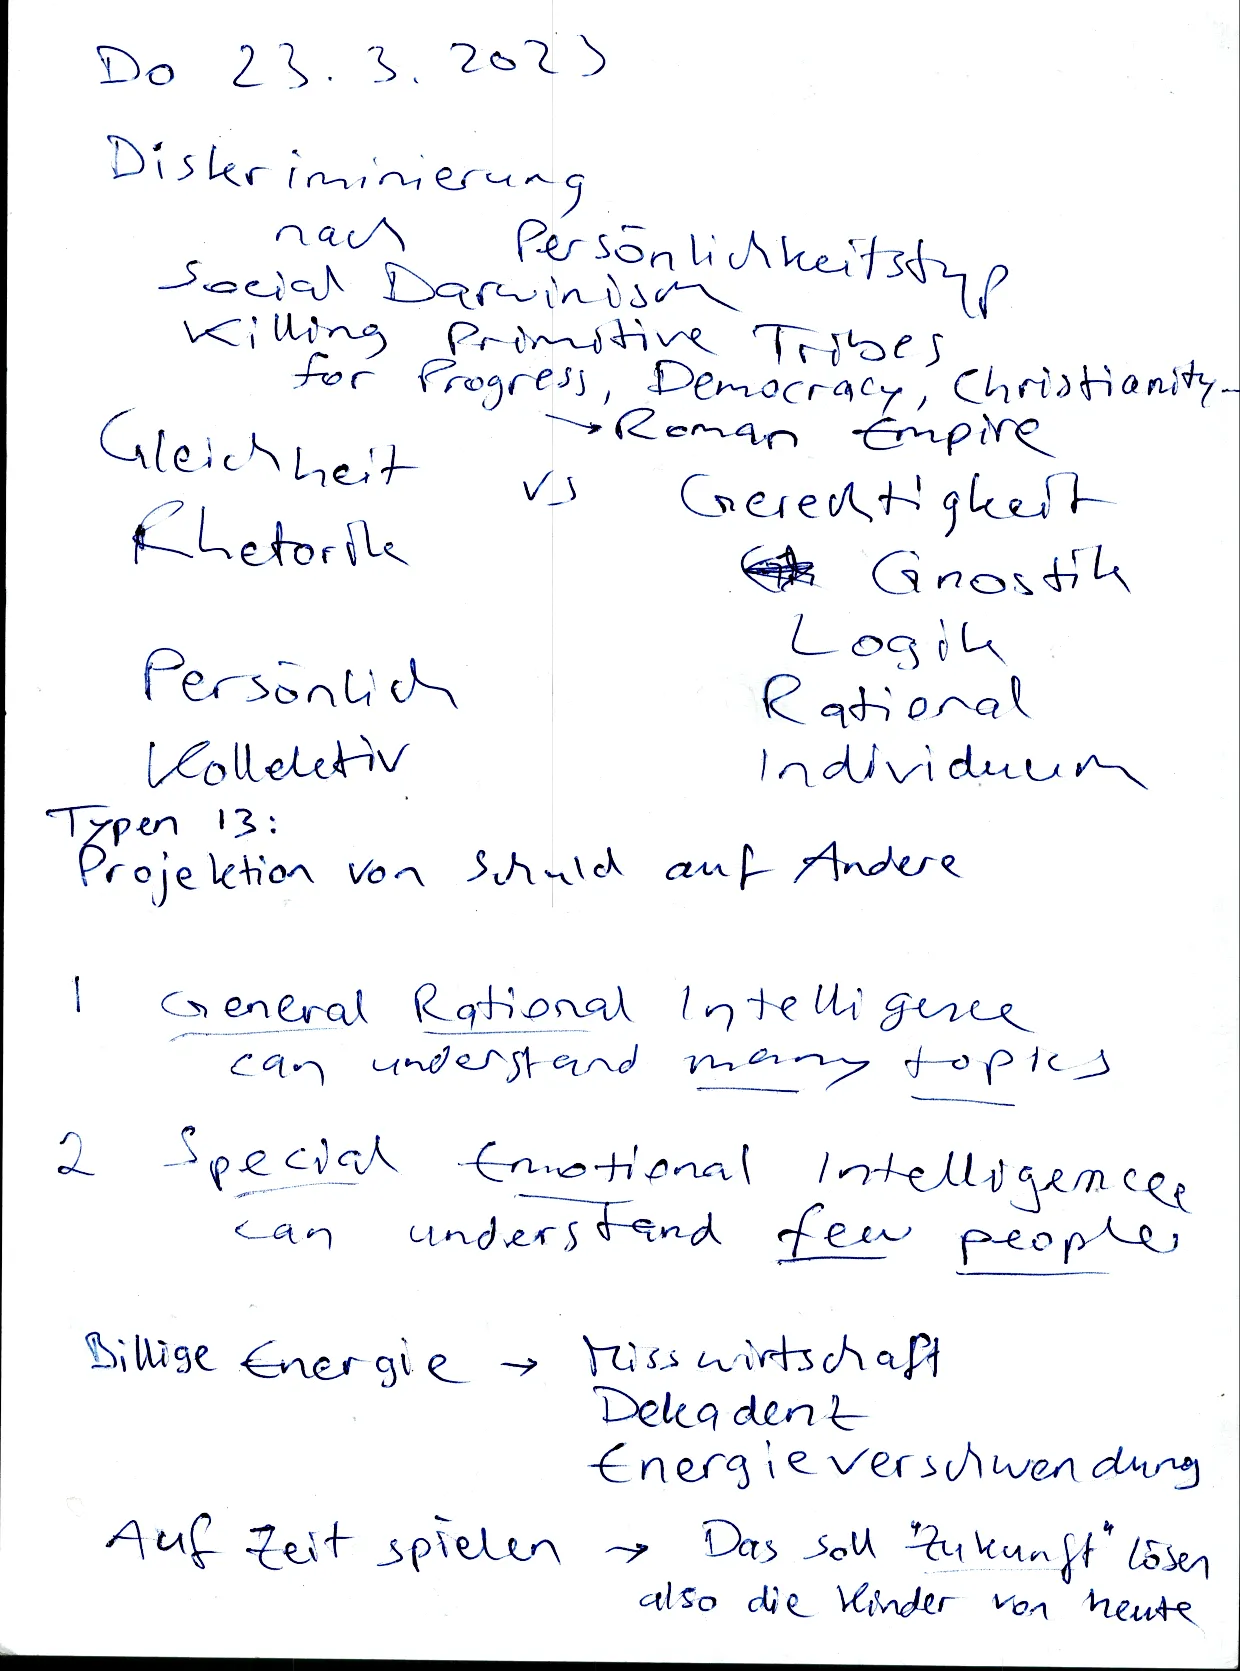 Do 23.3.2023
Diskriminierung
nach Persönlichkeitstyp
Social Darwinism
Killing Primitive Tribes
for Progress, Democracy, Christianity
→ Roman Empire
Gleichheit vs Gerechtigkeit
Rhetorik Gnostik
Logik
Persönlich Rational
Kollektiv Individuum
Typen 13:
Projektion von Schuld auf Andere
1 General Rational Intelligence
can understand many topics
2 Special Emotional Intelligence
can understand few people
Billige Energie → Misswirtschaft
Dekadenz
Energieverschwendung
Auf Zeit spielen → Das soll "Zukunft" lösen
also die Kinder von heute